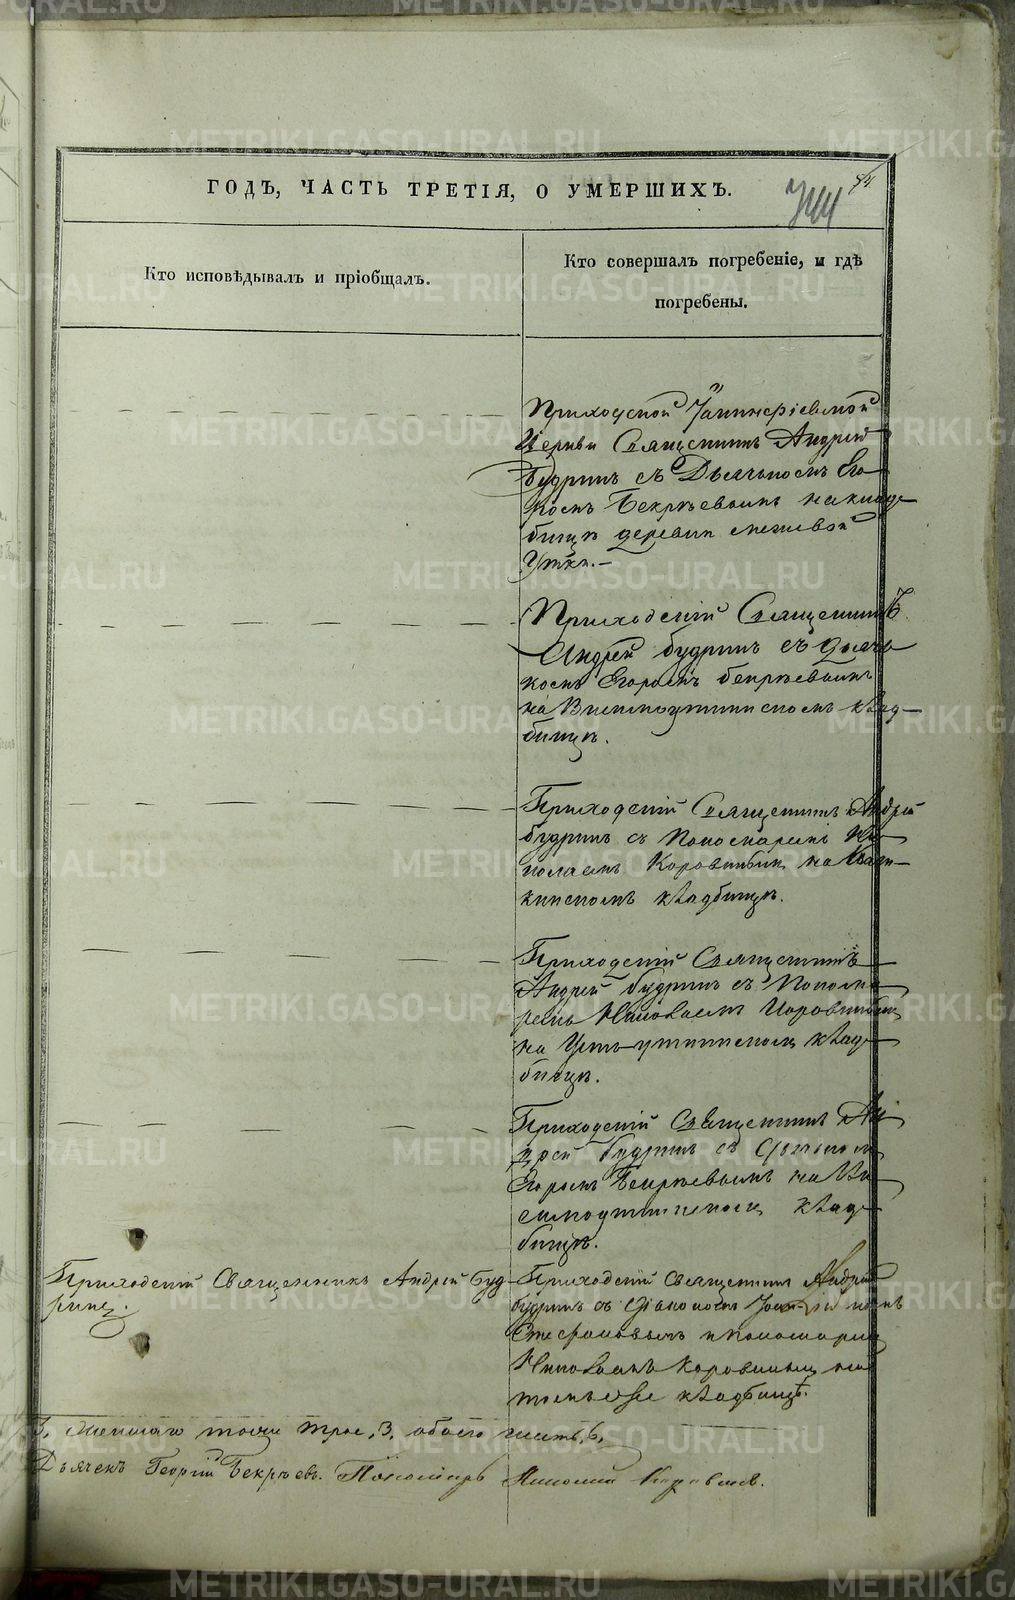 ГОДЪ, ЧАСТЬ ТРЕТІЯ, О УМЕРШИХЪ.
Кто исповѣдывалъ и пріобщалъ.
Кто совершалъ погребеніе, и гдѣ
погребены.
Приходской
Церкви Священникъ Андрей
Будринъ съ Дьячькомъ Его
ромъ Бекрѣевымъ на клад
бищѣ деревни Межевой
Утки.
Приходскій Священникъ
Андрей Будринъ съ Дьячь
комъ Егоромъ Бекрѣевымъ
на Висимоуткинскомъ клад
бищѣ.
Приходскій Священникъ Андрей
Будринъ съ Пономаремъ Ни
колаемъ Коровинымъ на
кладбищѣ.
Приходскій Священникъ
Андрей Будринъ съ Понома
ремъ Николаемъ Коровинымъ
на Усть-уткинскомъ клад
бищѣ.
Приходскій Священникъ Ан
дрей Будринъ съ Дьячькомъ
Егоромъ Бекрѣевымъ на Ви
симоуткинскомъ клад
бищѣ.
Приходскій Священникъ Андрей Буд
ринъ.
Приходскій Священникъ Андрей
Будринъ съ Діакономъ
Стефановымъ и Пономаремъ
Николаемъ Коровинымъ на
томъ же кладбищѣ.
3, женскаго трое, 3, обоего шесть, 6,
Дьячекъ Георгій Бекрѣевъ. Пономарь Николай Коровинъ.
METRIKI.GASO-URAL.RU